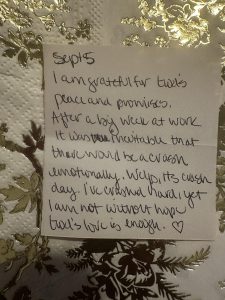 Sept 5
I am grateful for God's
peace and promises.
After a big week at work
it was inevitable that
there would be a crash
emotionally. Welp, its crash
day. I've crashed hard, yet
I am not without hope
God's love is enough. ♡